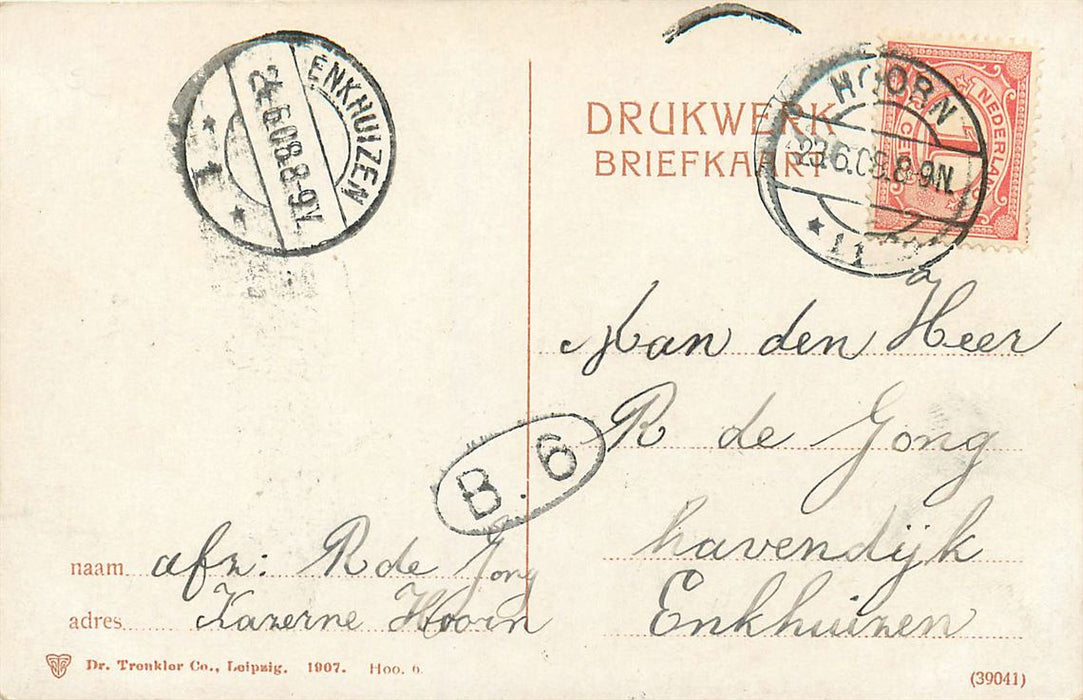 ENKHUIZEN
24.6.08.8-9V.
1
DRUKWERK
BRIEFKAART
HOORN
23.6.08.8-9N.
11
NEDERLAND
1
CENT
Aan den Heer
R de Jong
havendijk
Enkhuizen
B.6
naam afz: R de Jong
adres Kazerne Hoorn
Dr. Trenkler Co., Leipzig. 1907. Hoo. 6.
(39041)